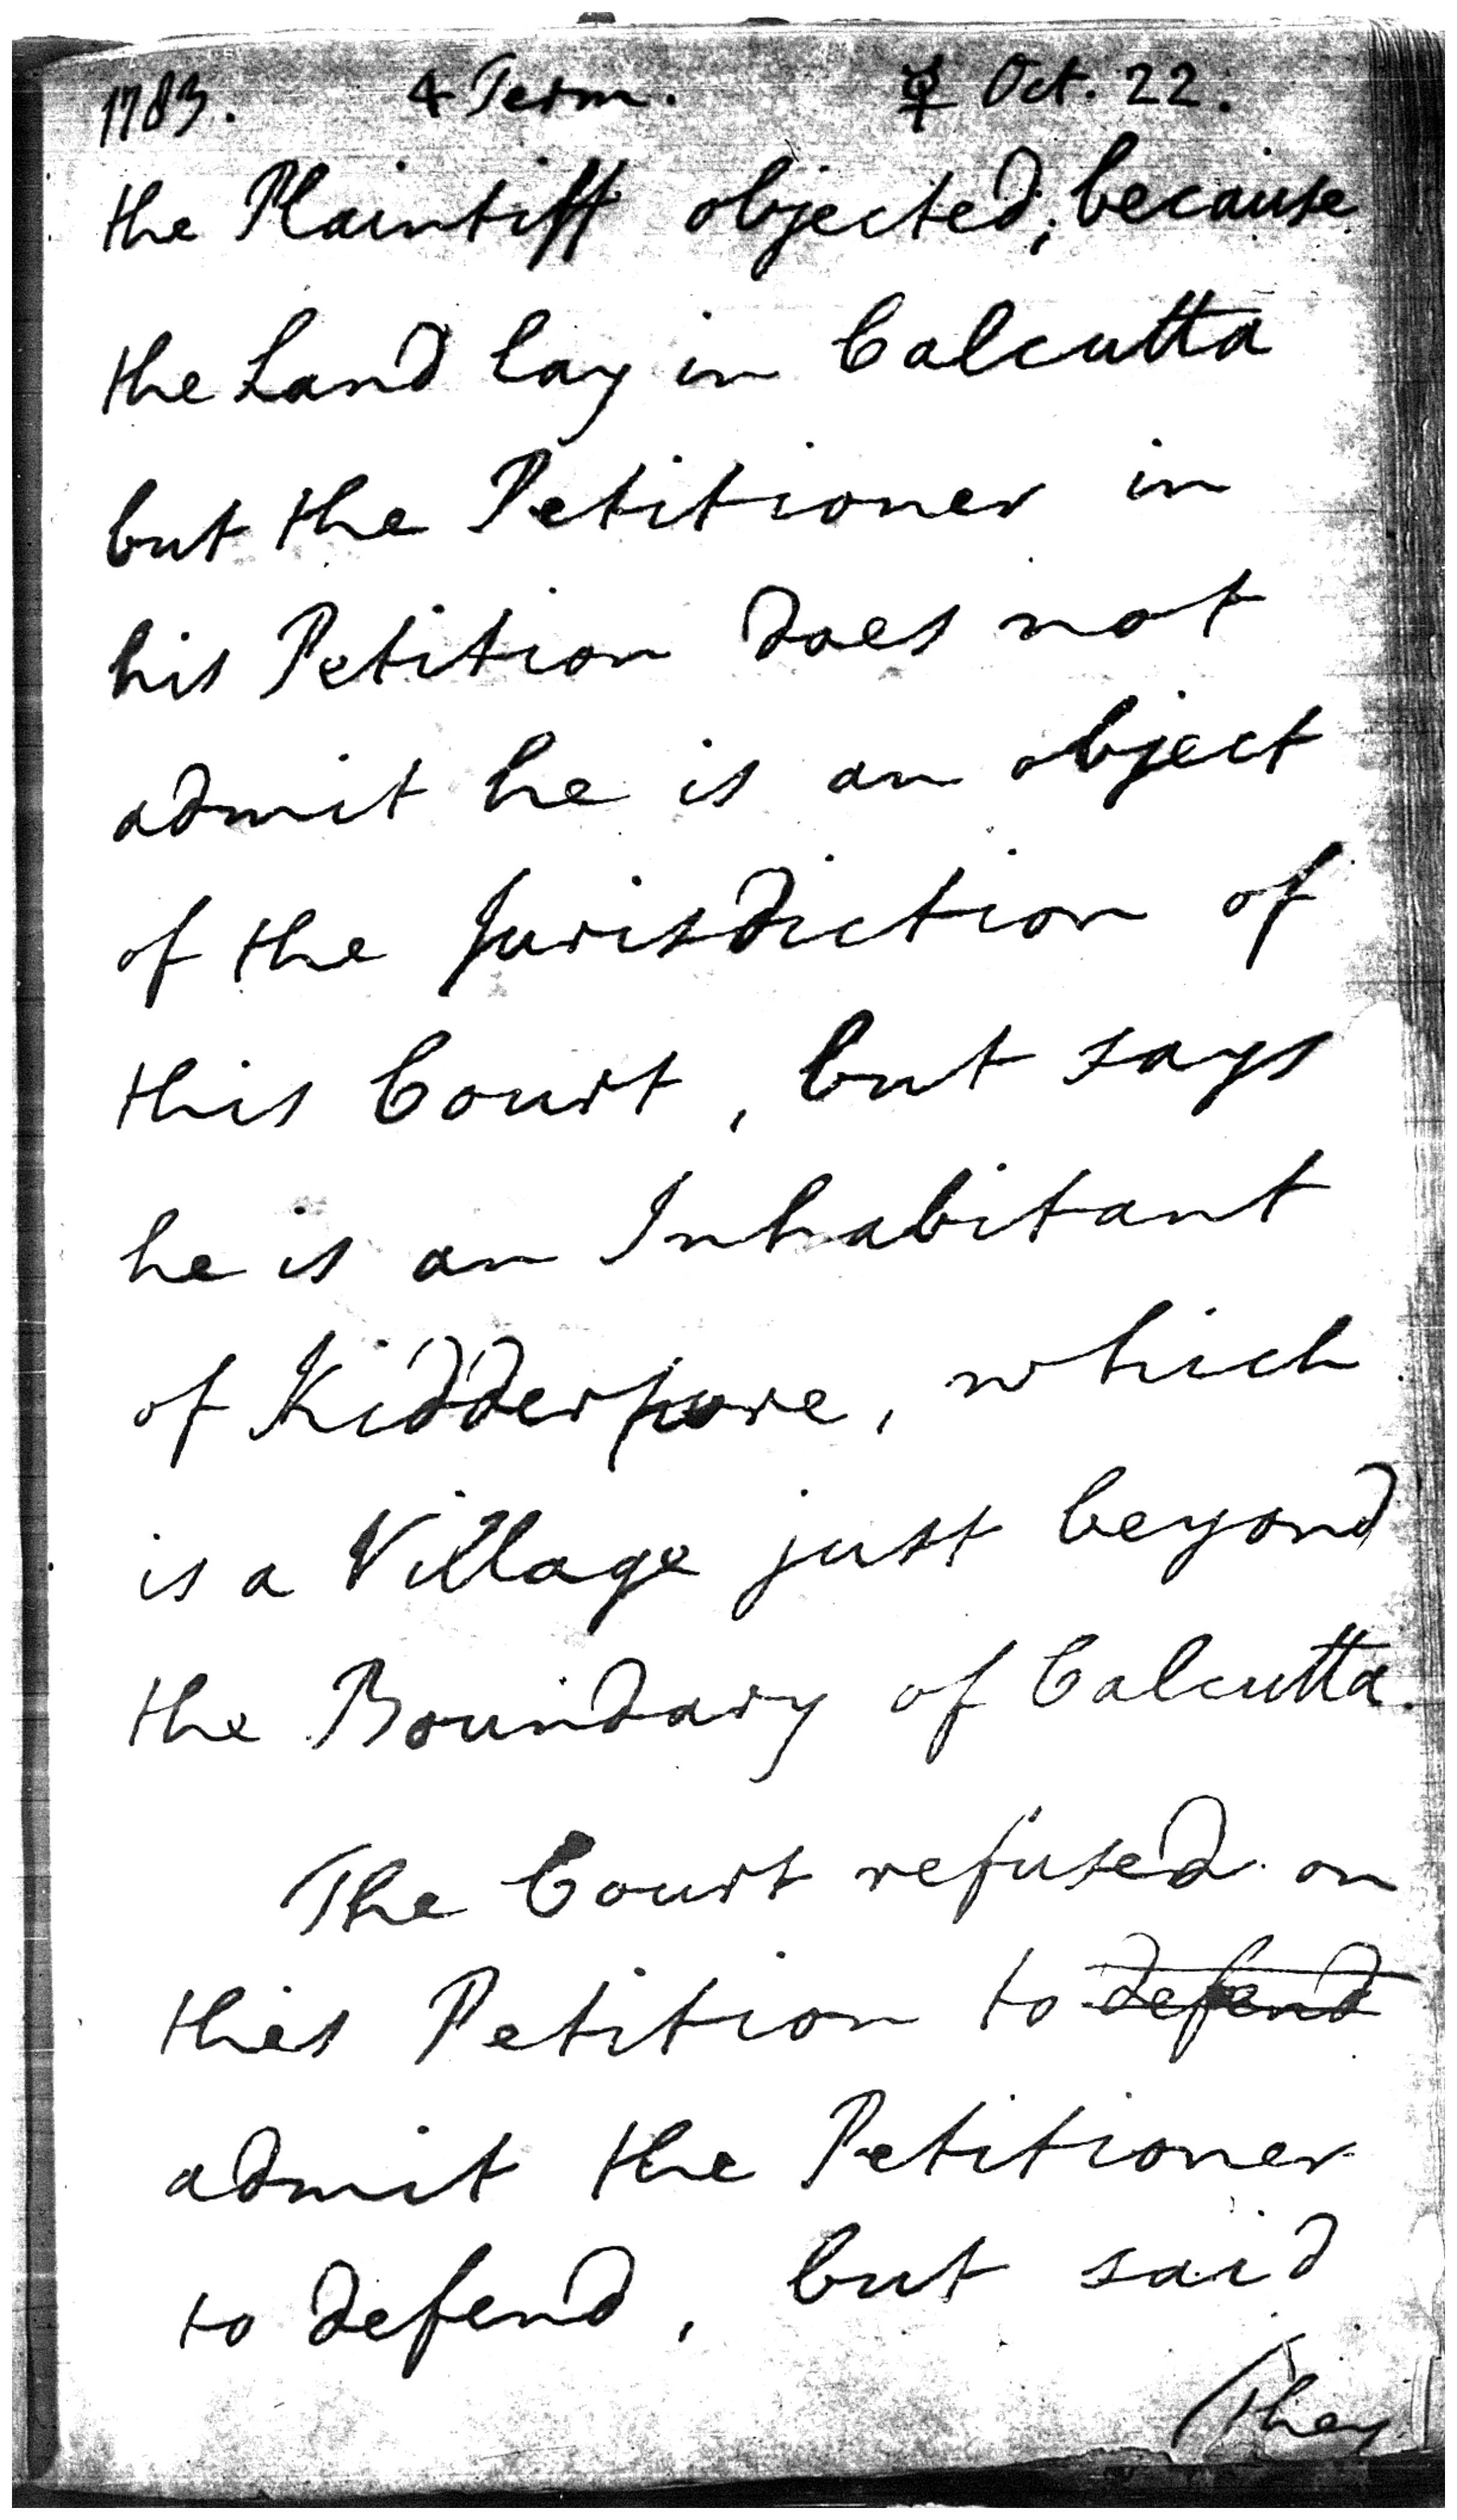 1783. 4 Term. ☿ Oct. 22.
the Plaintiff objected; because
the Land lay in Calcutta
but the Petitioner in
his Petition does not
admit he is an object
of the Jurisdiction of
this Court, but says
he is an Inhabitant
of Kidderpore, which
is a Village just beyond
the Boundary of Calcutta.
The Court refused on
this Petition to defend
admit the Petitioner
to defend, but said
They